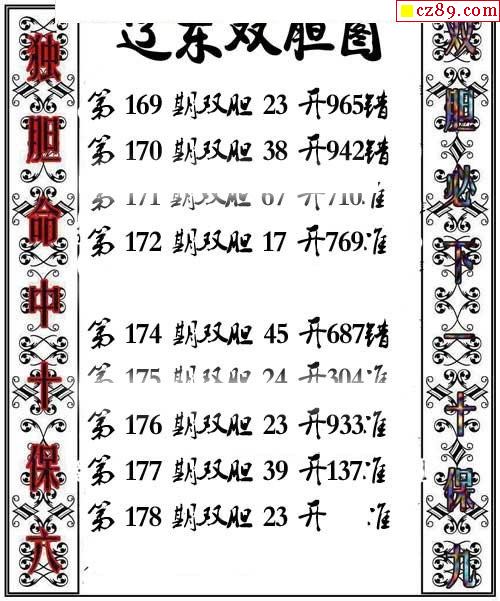 cz89.com
辽东双胆图
独胆命中十保六
第 169 期双胆 23 开965错
第 170 期双胆 38 开942错
第 171 期双胆 67 开710.准
第 172 期双胆 17 开769.准
第 174 期双胆 45 开687错
第 175 期双胆 24 开304.准
第 176 期双胆 23 开933.准
第 177 期双胆 39 开137.准
第 178 期双胆 23 开 准
双胆必下一十保九